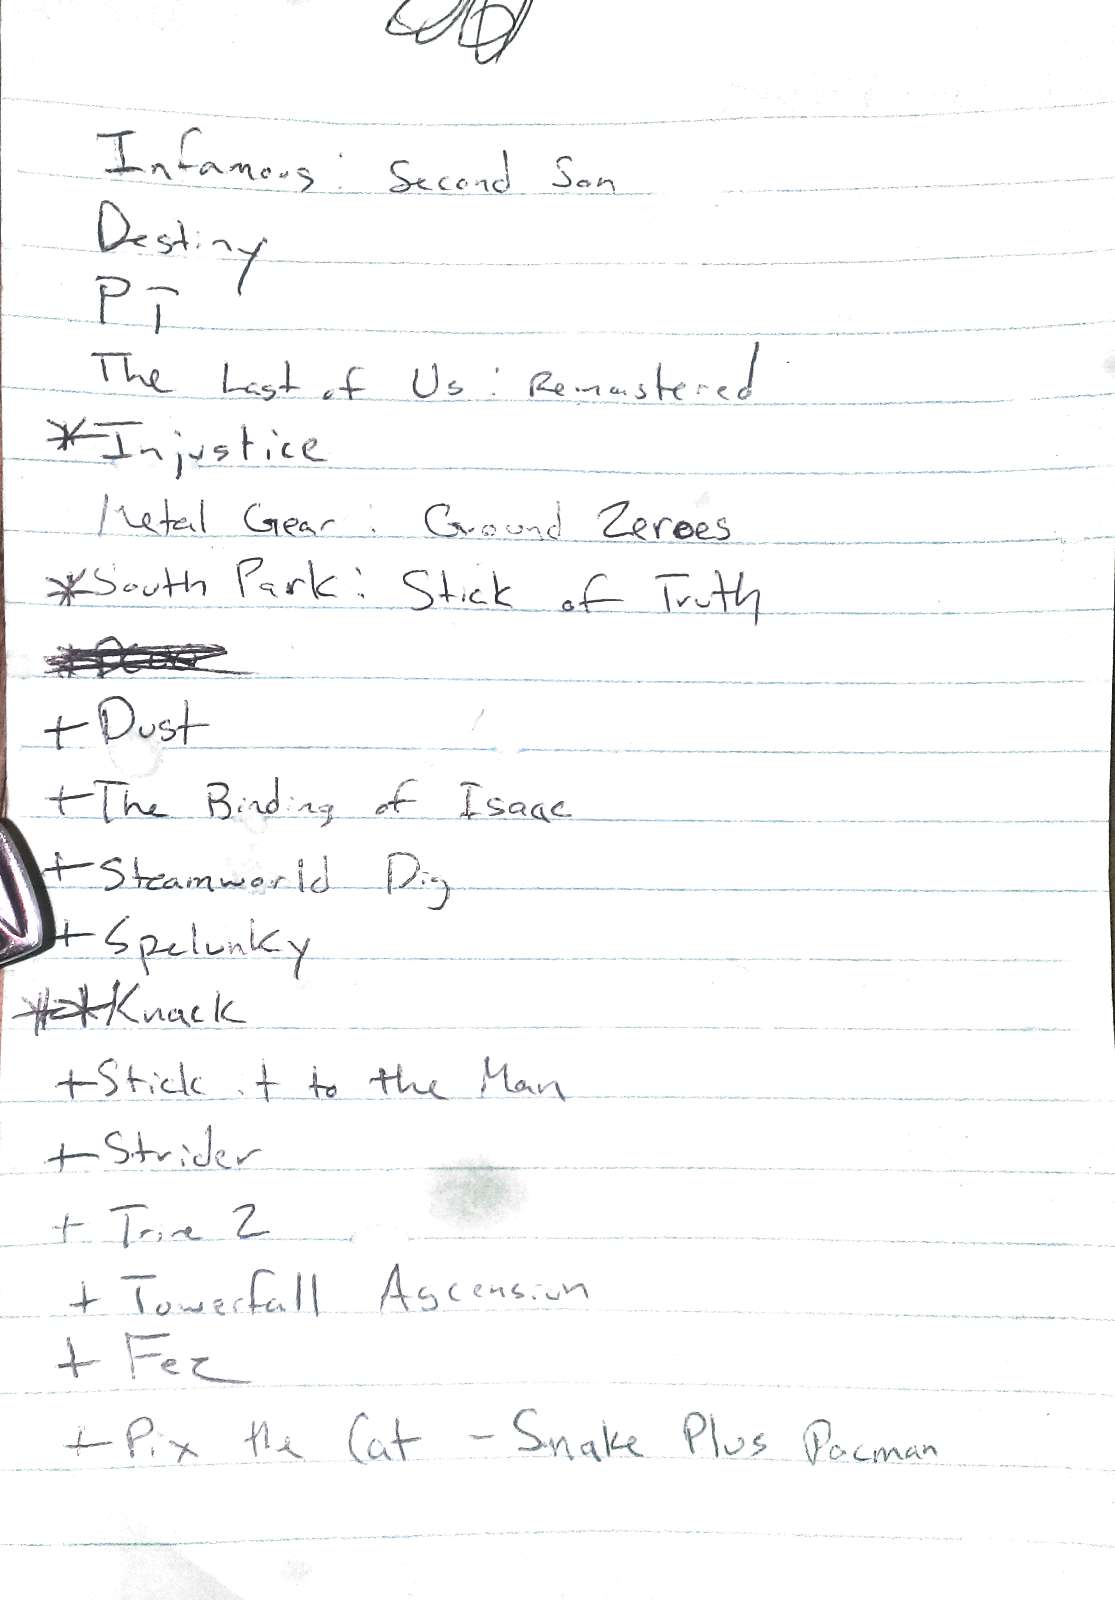 Infamous: Second Son
Destiny
PT
The Last of Us: Remastered
*Injustice
Metal Gear: Ground Zeroes
*South Park: Stick of Truth
+Dust
+The Binding of Isaac
+Steamworld Dig
+Spelunky
**Knack
+Stick it to the Man
+Strider
+ Trine 2
+ Towerfall Ascension
+ Fez
+Pix the Cat - Snake Plus Pacman